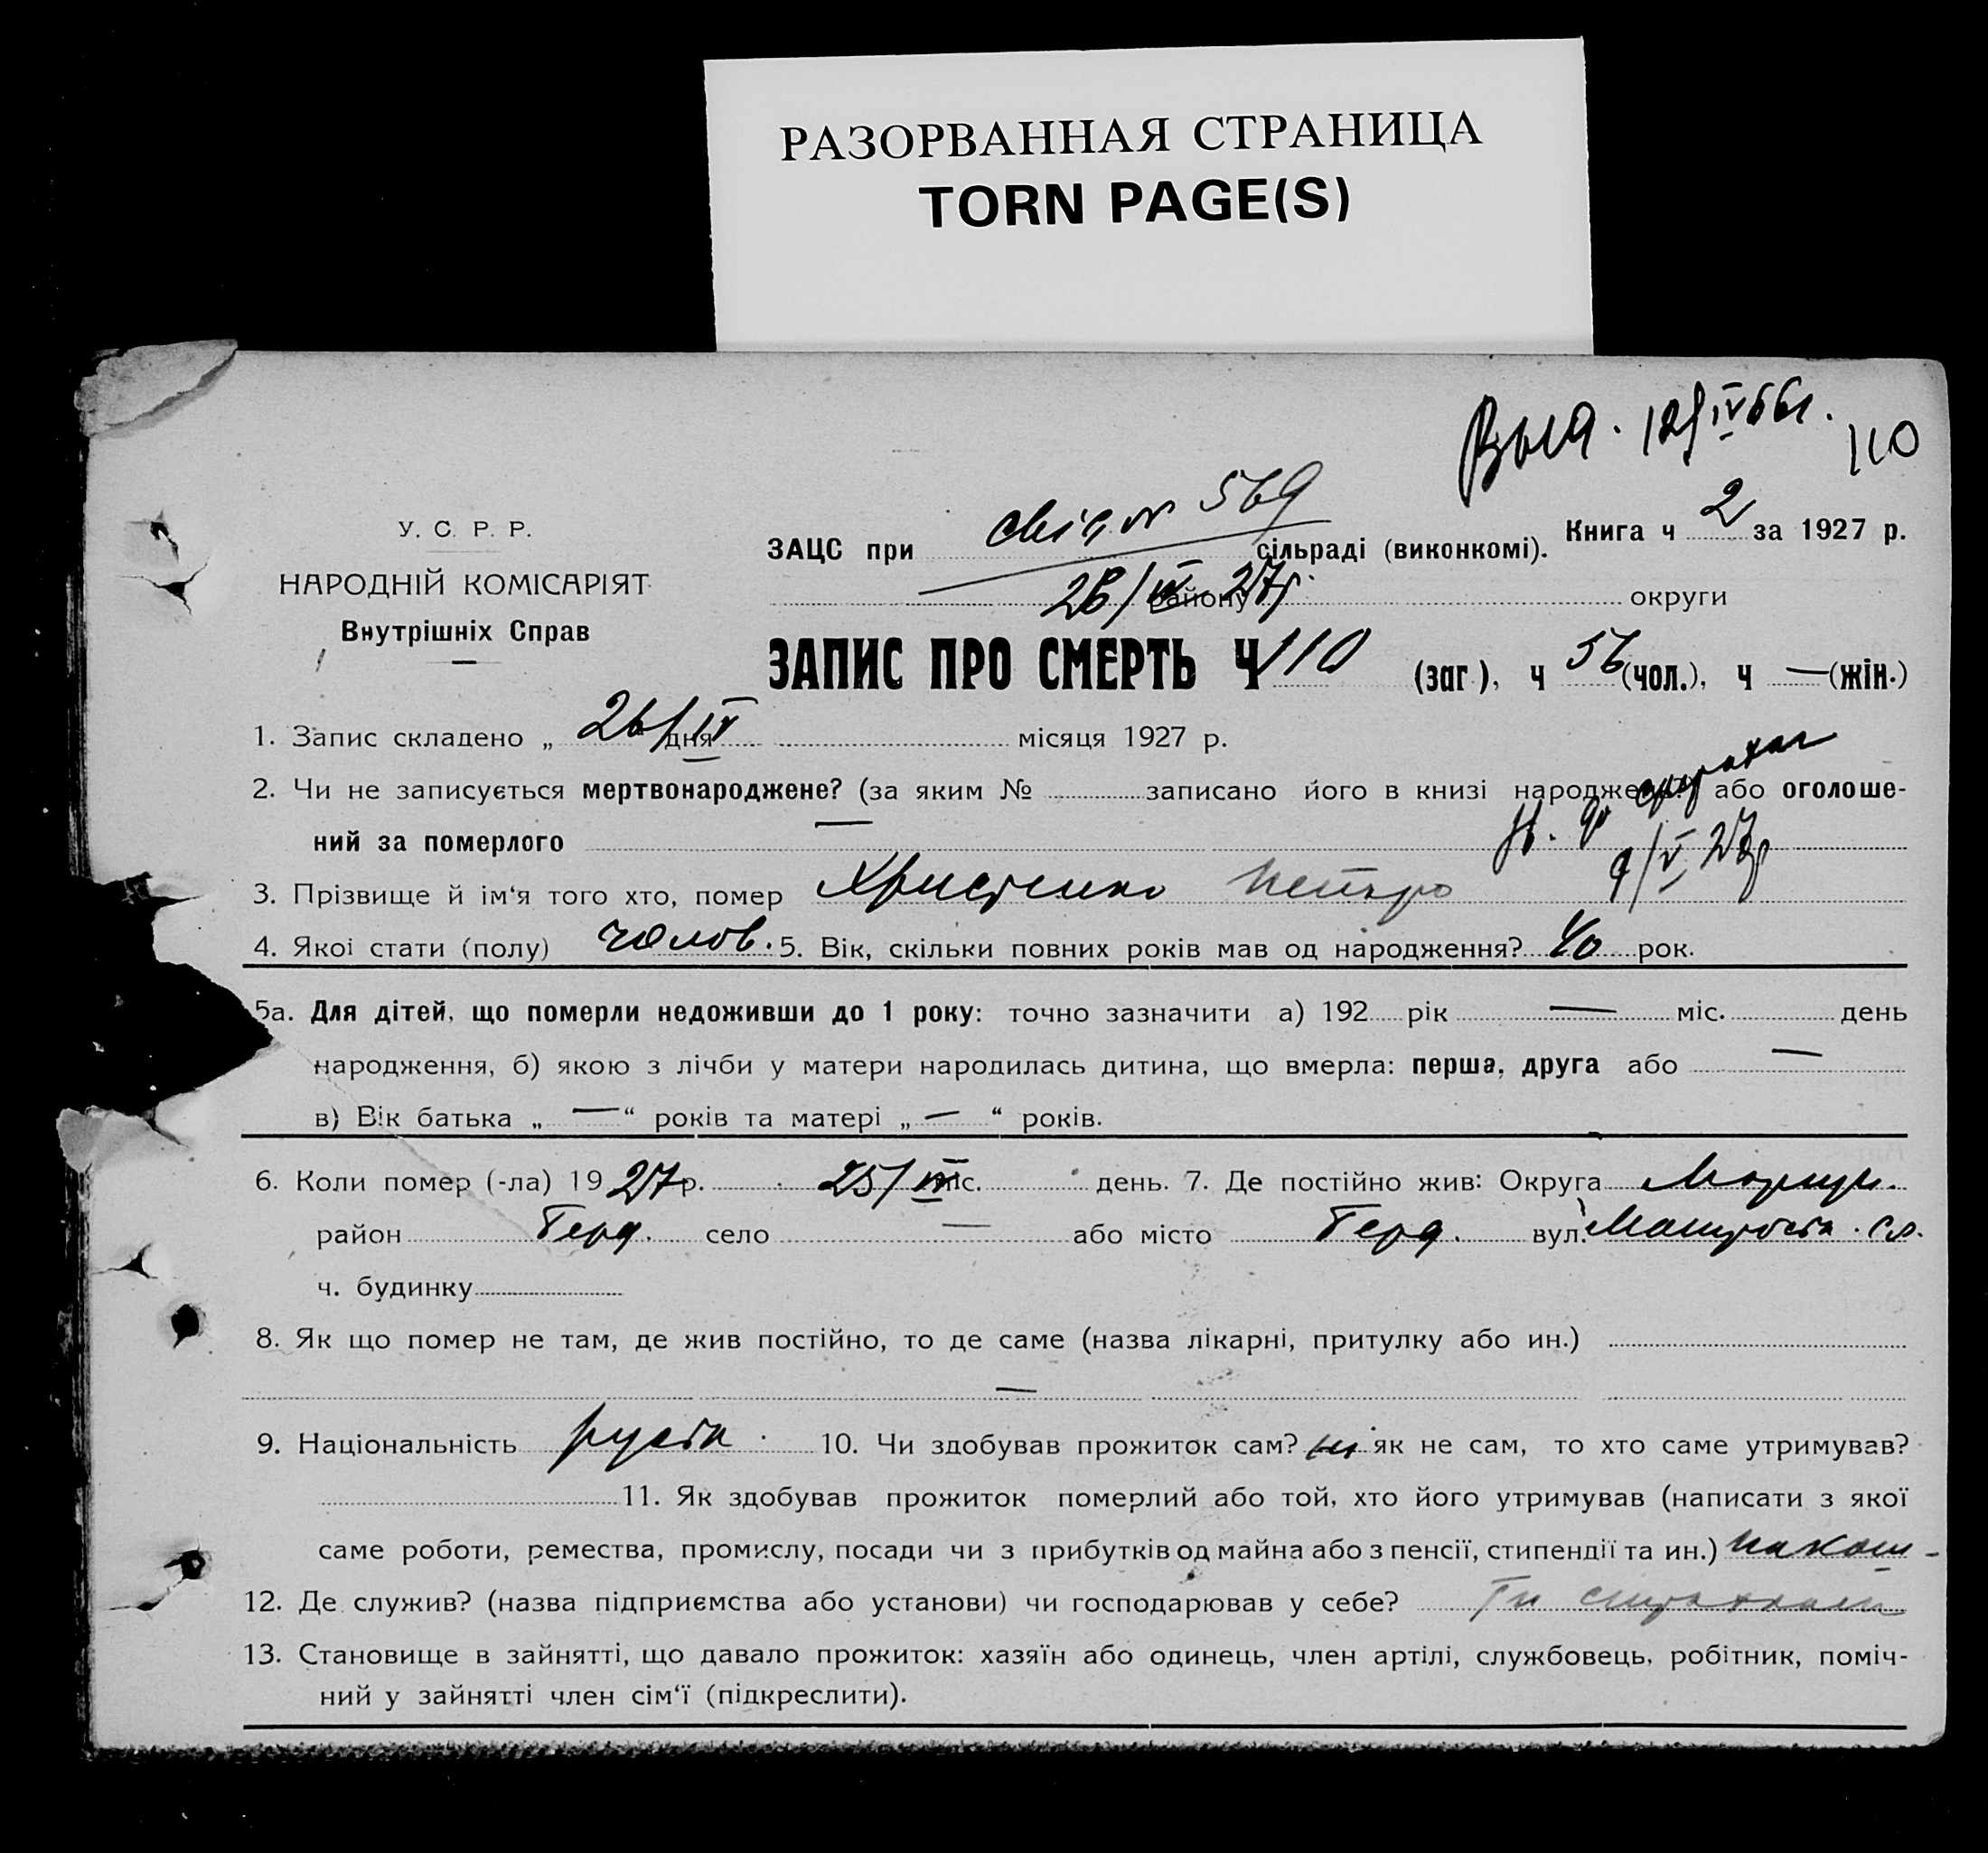 РАЗОРВАННАЯ СТРАНИЦА
TORN PAGE(S)
110
У. С. Р. Р.
НАРОДНІЙ КОМІСАРІЯТ
Внутрішніх Справ
569
ЗАЦС при сільраді (виконкомі). Книга ч 2 за 1927 р.
району округи
ЗАПИС ПРО СМЕРТЬ Ч 110 (заг), ч 56 (чол.), ч — (жін.)
1. Запис складено „ 26/IV дня місяця 1927 р.
2. Чи не записується мертвонароджене? (за яким № записано його в книзі народжень) або оголоше-
ний за померлого —
9/V 27р
3. Прізвище й ім‘я того хто, помер Христенко Петро
4. Якої стати (полу) чолов. 5. Вік, скільки повних років мав од народження? 40 рок.
5а. Для дітей, що померли недоживши до 1 року: точно зазначити а) 192 рік — міс. день
народження, б) якою з лічби у матери народилась дитина, що вмерла: перша, друга або —
в) Вік батька „ — “ років та матері „ — “ років.
6. Коли помер (-ла) 19 27 р. 25/IV міс. день. 7. Де постійно жив: Округа Маріуп.
район Берд. село — або місто Берд. вул.
ч. будинку
8. Як що помер не там, де жив постійно, то де саме (назва лікарні, притулку або ин.)
—
9. Національність 10. Чи здобував прожиток сам? як не сам, то хто саме утримував?
11. Як здобував прожиток померлий або той, хто його утримував (написати з якої
саме роботи, ремества, промислу, посади чи з прибутків од майна або з пенсії, стипендії та ин.) на кош-
12. Де служив? (назва підприємства або установи) чи господарював у себе? ти страхкаси
13. Становище в зайнятті, що давало прожиток: хазяїн або одинець, член артілі, службовець, робітник, поміч-
ний у зайнятті член сім‘ї (підкреслити).